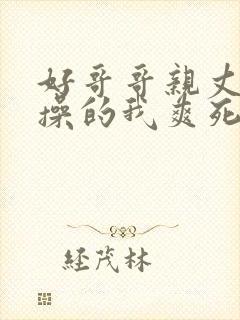 好哥哥亲丈
操的我爽死
经茂林